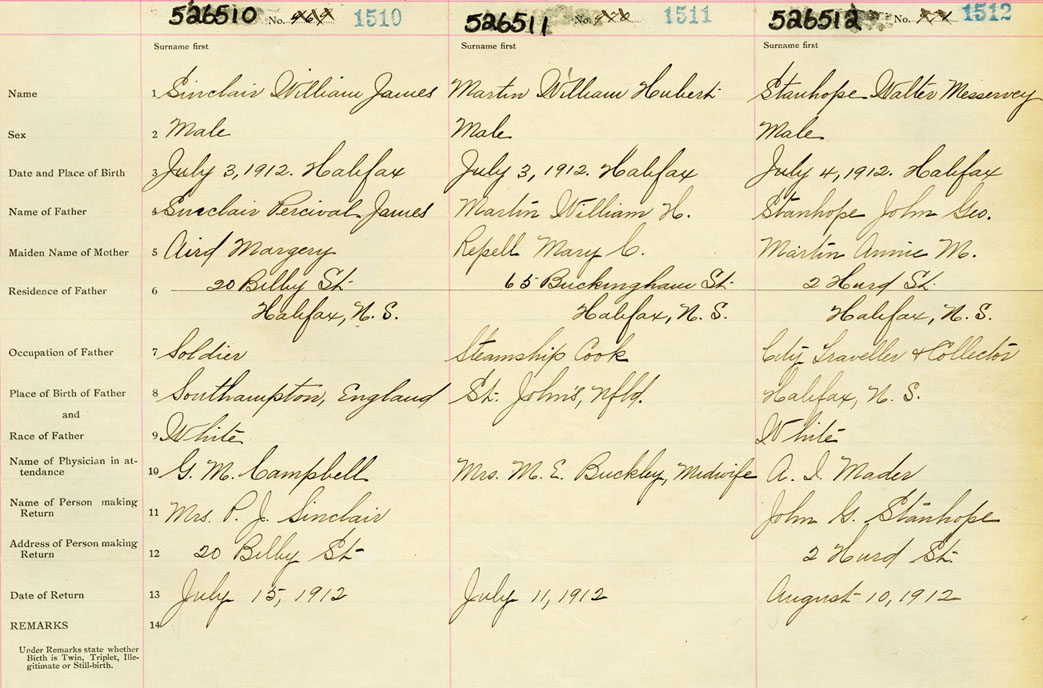 526510 No. 1510 526511 No. 1511 526512 No. 1512
Surname first Surname first Surname first
Name 1 Sinclair William James Martin William Hubert Stanhope Walter Messervey
Sex 2 Male Male Male
Date and Place of Birth 3 July 3, 1912. Halifax July 3, 1912. Halifax July 4, 1912. Halifax
Name of Father 4 Sinclair Percival James Martin William H. Stanhope John Geo.
Maiden Name of Mother 5 Aird Margery Repell Mary C. Martin Annie M.
Residence of Father 6 20 Bilby St. 65 Buckingham St. 2 Hurd St.
Halifax, N. S. Halifax, N. S. Halifax, N. S.
Occupation of Father 7 Soldier Steamship Cook City Traveller & Collector
Place of Birth of Father 8 Southampton, England St. John's, Nfld. Halifax, N. S.
and
Race of Father 9 White White
Name of Physician in at-
tendance 10 G. M. Campbell Mrs. M. E. Buckley, Midwife A. I. Mader
Name of Person making
Return 11 Mrs. P. J. Sinclair John G. Stanhope
Address of Person making
Return 12 20 Bilby St. 2 Hurd St.
Date of Return 13 July 15, 1912 July 11, 1912 August 10, 1912
REMARKS 14
Under Remarks state whether
Birth is Twin, Triplet, Ille-
gitimate or Still-birth.